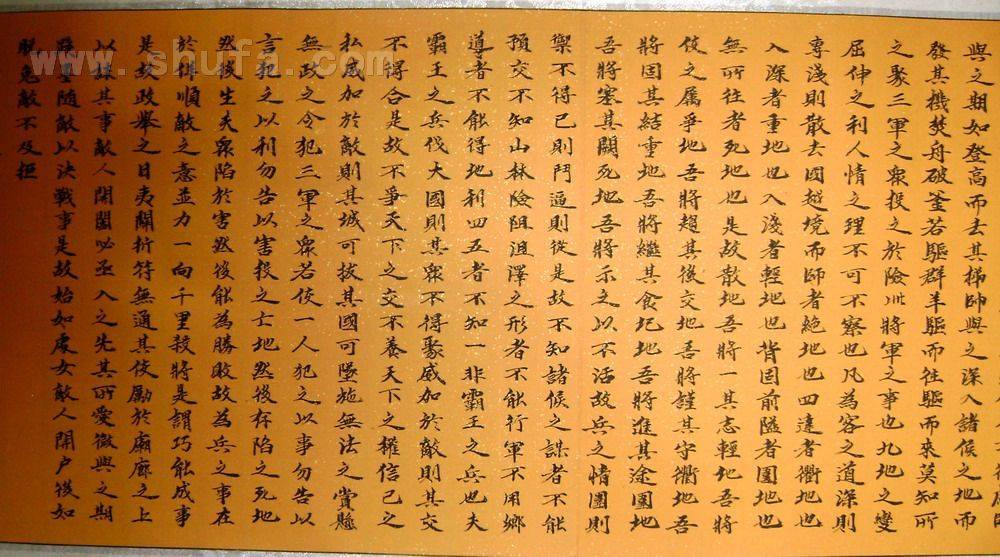 與之期如登高而去其梯帥與之深入諸侯之地而
發其機焚舟破釜若驅群羊驅而往驅而來莫知所
之聚三軍之眾投之於險此將軍之事也九地之變
屈伸之利人情之理不可不察也凡為客之道深則
專淺則散去國越境而師者絕地也四達者衢地也
入深者重地也入淺者輕地也背固前隘者圍地也
無所往者死地也是故散地吾將一其志輕地吾將
使之屬爭地吾將趨其後交地吾將謹其守衢地吾
將固其結重地吾將繼其食圮地吾將進其途圍地
吾將塞其闕死地吾將示之以不活故兵之情圍則
禦不得已則鬥逼則從是故不知諸侯之謀者不能
預交不知山林險阻沮澤之形者不能行軍不用鄉
導者不能得地利四五者不知一非霸王之兵也夫
霸王之兵伐大國則其眾不得聚威加於敵則其交
不得合是故不爭天下之交不養天下之權信己之
私威加於敵則其城可拔其國可墮施無法之賞懸
無政之令犯三軍之眾若使一人犯之以事勿告以
言犯之以利勿告以害投之亡地然後存陷之死地
然後生夫眾陷於害然後能為勝敗故為兵之事在
於佯順敵之意並力一向千里殺將是謂巧能成事
是故政舉之日夷關折符無通其使勵於廟廊之上
以誅其事敵人開闔必亟入之先其所愛微與之期
踐墨隨敵以決戰事是故始如處女敵人開户後如
脫兔敵不及拒
www.shufa.com